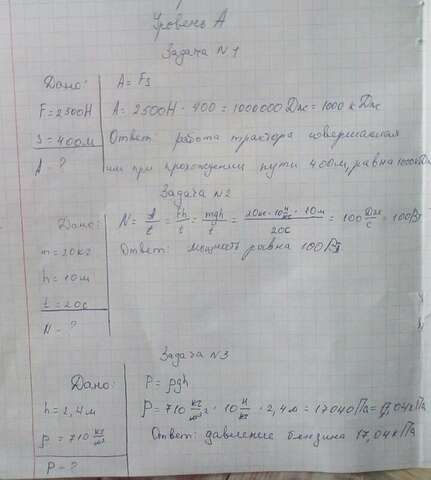 Уровень А
Задача N1
Дано:
F = 2500Н
S = 400м
A - ?
A = Fs
A = 2500Н · 400 = 1000000 Дж = 1000 кДж
Ответ: работа трактора совершаемая
им при прохождении пути 400м, равна 1000кДж
Задача N2
Дано:
m = 20кг
h = 10м
t = 20с
N - ?
N = A/t = Fh/t = mgh/t = 20кг · 10 Н/кг · 10м / 20с = 100 Дж/с = 100Вт
Ответ: мощность равна 100Вт
Задача N3
Дано:
h = 2,4м
ρ = 710 кг/м³
P - ?
P = ρgh
P = 710 кг/м³ · 10 Н/кг · 2,4м = 17040Па = 17,04кПа
Ответ: давление бензина 17,04кПа